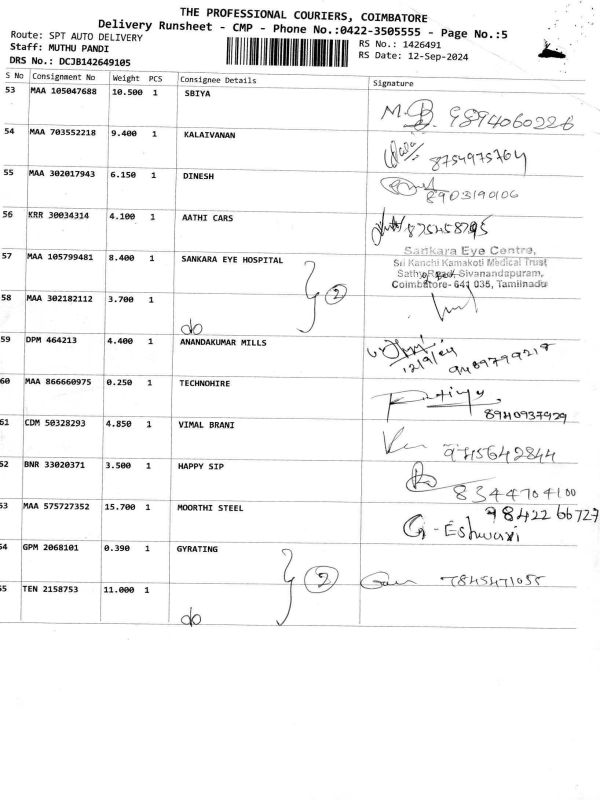 THE PROFESSIONAL COURIERS, COIMBATORE
Delivery Runsheet - CMP - Phone No.:0422-3505555 - Page No.:5
Route: SPT AUTO DELIVERY
RS No.: 1426491
Staff: MUTHU PANDI
RS Date: 12-Sep-2024
DRS No.: DCJB142649105
S No Consignment No Weight PCS Consignee Details Signature
53 MAA 105047688 10.500 1 SBIYA
9894060226
54 MAA 703552218 9.400 1 KALAIVANAN
8754975764
55 MAA 302017943 6.150 1 DINESH
8903190106
56 KRR 30034314 4.100 1 AATHI CARS
57 MAA 105799481 8.400 1 SANKARA EYE HOSPITAL
Sankara Eye Centre,
Sri Kanchi Kamakoti Medical Trust
Sathy Road, Sivanandapuram,
Coimbatore- 641 035, Tamilnadu
2
58 MAA 302182112 3.700 1
do
59 DPM 464213 4.400 1 ANANDAKUMAR MILLS
12/9/24
9489799217
60 MAA 866660975 0.250 1 TECHNOHIRE
8940937929
61 CDM 50328293 4.850 1 VIMAL BRANI
9715642844
62 BNR 33020371 3.500 1 HAPPY SIP
8344704100
63 MAA 575727352 15.700 1 MOORTHI STEEL
9842266727
G-Eshwari
64 GPM 2068101 0.390 1 GYRATING
2
7845471055
65 TEN 2158753 11.000 1
do